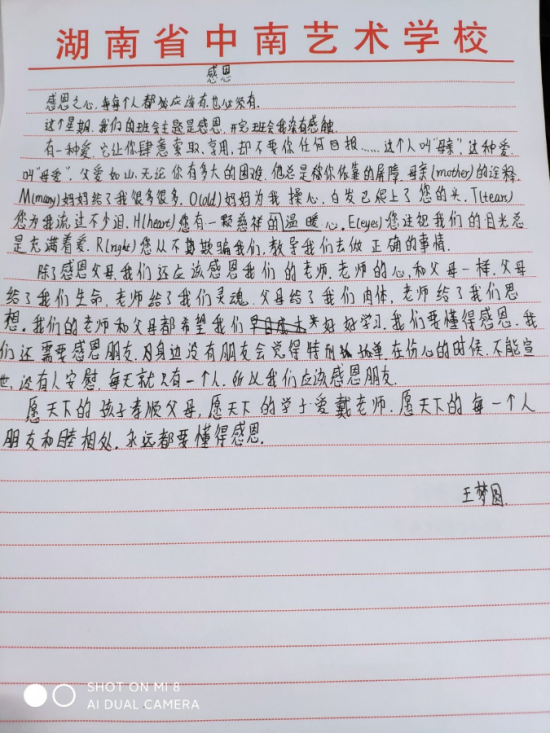 湖南省中南艺术学校
感恩
感恩之心,每每个人都应该有也必须有.
这个星期,我们的班会主题是感恩,开完班会我深有感触.
有一种爱,它让你肆意索取,享用,却不要你任何回报……这个人叫"母亲",这种爱,
叫"母爱".父爱如山,无论你有多大的困难,他总是给你依靠的屏障.母亲(mother)的诠释.
M(many)妈妈给了我很多很多.O(old)妈妈为我操心,白发已爬上了您的头.T(tears)
您为我流过不少泪.H(heart)您有一颗慈祥的温暖心.E(eyes)您注视我们的目光总
是充满着爱.R(right)您从不欺骗我们,教导我们去做正确的事情.
除了感恩父母,我们还应该感恩我们的老师.老师的心,和父母一样.父母
给了我们生命,老师给了我们灵魂.父母给了我们肉体,老师给了我们思
想.我们的老师和父母都希望我们好好学习.我们要懂得感恩.我
们还需要感恩朋友,因身边没有朋友会觉得特别孤单,在伤心的时候,不能宣
泄,没有人安慰,每天就只有一个人.所以我们应该感恩朋友.
愿天下的孩子孝顺父母,愿天下的学子爱戴老师,愿天下的每一个人
朋友和睦相处,永远都要懂得感恩.
王梦圆.
SHOT ON MI 8
AI DUAL CAMERA